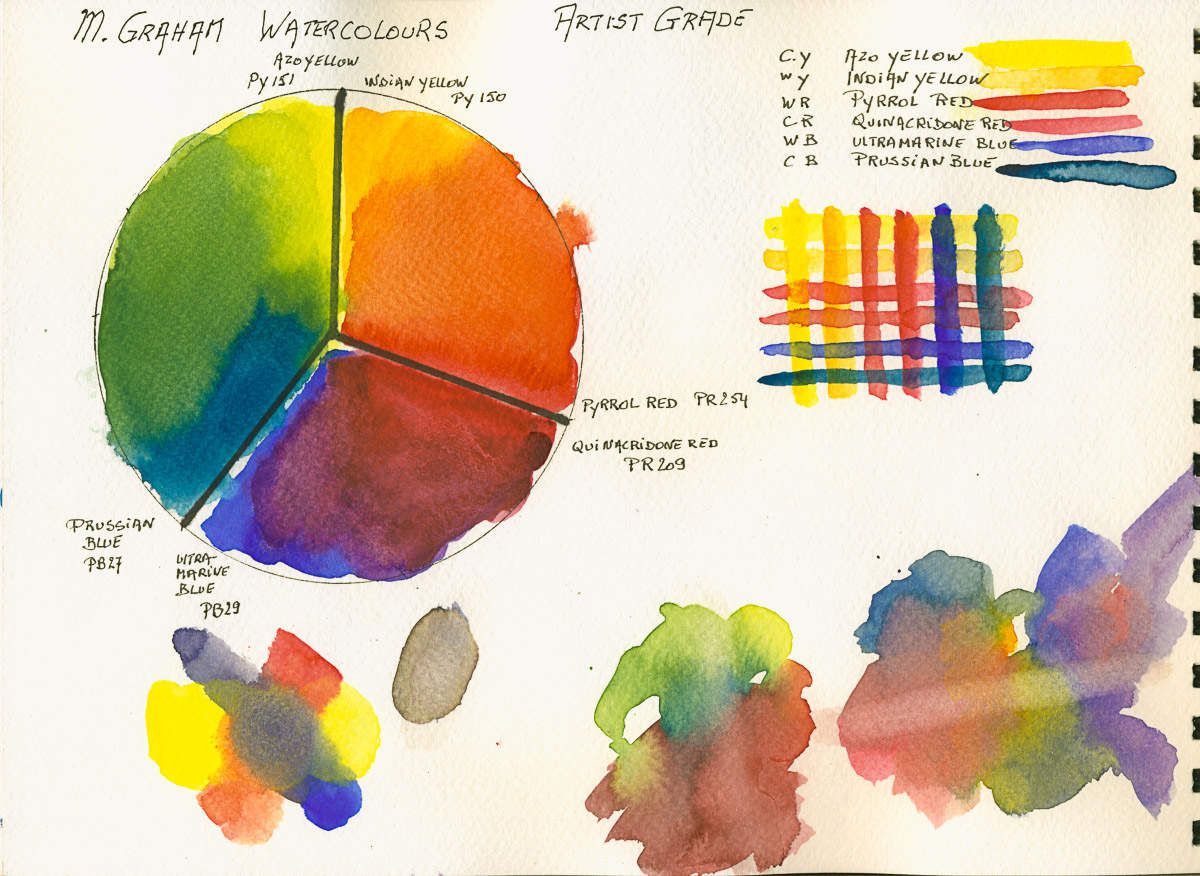 M. GRAHAM WATERCOLOURS
ARTIST GRADE
AZO YELLOW
PY 151
INDIAN YELLOW
PY 150
C.Y AZO YELLOW
WY INDIAN YELLOW
WR PYRROL RED
CR QUINACRIDONE RED
WB ULTRAMARINE BLUE
CB PRUSSIAN BLUE
PYRROL RED PR254
QUINACRIDONE RED
PR209
PRUSSIAN
BLUE
PB27
ULTRA
MARINE
BLUE
PB29